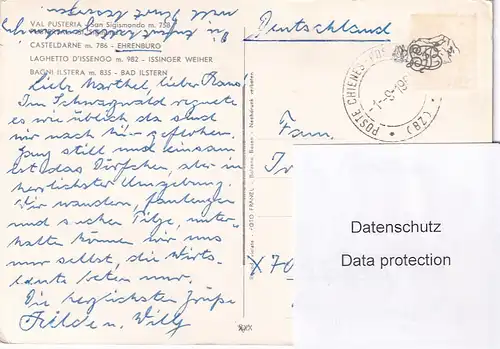 VAL PUSTERIA San Sigismondo m. 758
CASTELDARNE m. 786 - EHRENBURG
LAGHETTO D'ISSENGO m. 982 - ISSINGER WEIHER
BAGNI ILSTERA m. 835 - BAD ILSTERN
Liebe Marthel, lieber Hans!
Im Schwarzwald regnete
es wie üblich da sind
wir nach hier geflohen.
Ganz still und einsam
ist das Dörfchen, aber in
herrlichster Umgebung.
Wir wandern, faulenzen
und suchen Pilze, unter-
halten können wir uns
nur selbst, die Wirts-
leute beten nur.
Die herzlichsten Grüße
Hilde u. Willy
Deutschland
POSTE CHIENES
(BZ)
Fam.
X 70
Datenschutz
Data protection